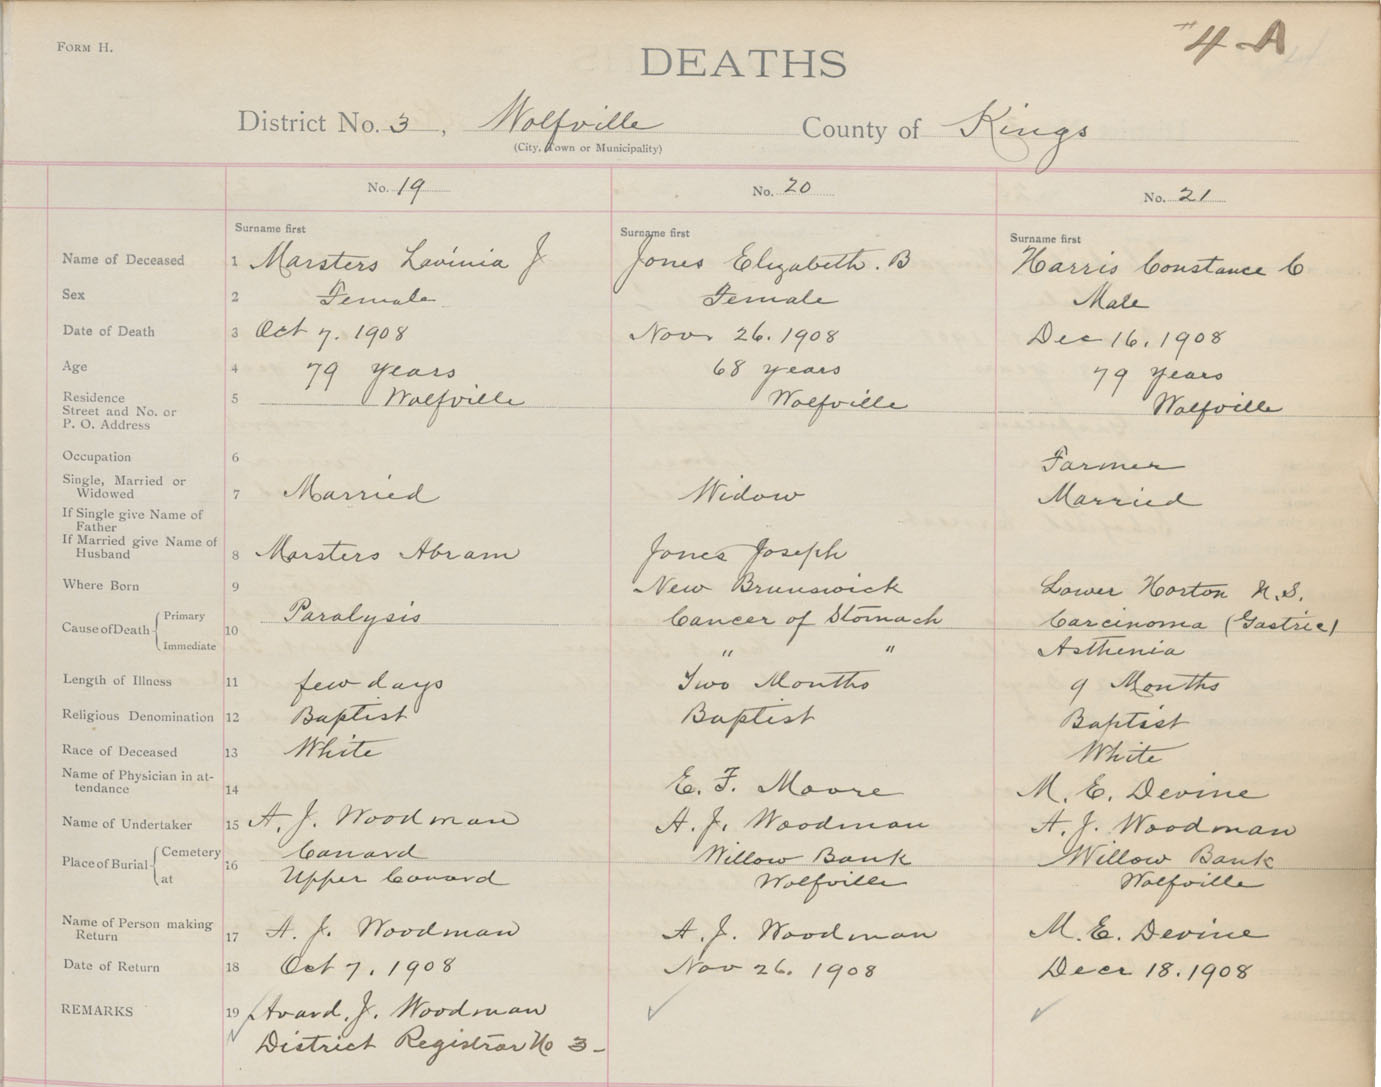 Form H.
#4-A
DEATHS
District No. 3, Wolfville County of Kings
(City, Town or Municipality)
No. 19 No. 20 No. 21
Surname first Surname first Surname first
Name of Deceased 1 Marsters Lavinia J Jones Elizabeth. B Harris Constance C
Sex 2 Female Female Male
Date of Death 3 Oct 7. 1908 Nov. 26. 1908 Dec 16. 1908
Age 4 79 years 68 years 79 years
Residence
Street and No. or
P. O. Address 5 Wolfville Wolfville Wolfville
Occupation 6 Farmer
Single, Married or
Widowed 7 Married Widow Married
If Single give Name of
Father
If Married give Name of
Husband 8 Marsters Abram Jones Joseph
Where Born 9 New Brunswick Lower Horton N.S.
Cause of Death Primary 10 Paralysis Cancer of Stomach Carcinoma (Gastric)
Immediate " " Asthenia
Length of Illness 11 few days Two Months 9 Months
Religious Denomination 12 Baptist Baptist Baptist
Race of Deceased 13 White White
Name of Physician in at-
tendance 14 E. F. Moore M. E. Devine
Name of Undertaker 15 A. J. Woodman A. J. Woodman A. J. Woodman
Place of Burial Cemetery 16 Canard Willow Bank Willow Bank
at Upper Canard Wolfville Wolfville
Name of Person making
Return 17 A. J. Woodman A. J. Woodman M. E. Devine
Date of Return 18 Oct 7. 1908 Nov 26. 1908 Decr 18. 1908
REMARKS 19 Avard. J. Woodman
District Registrar No 3-